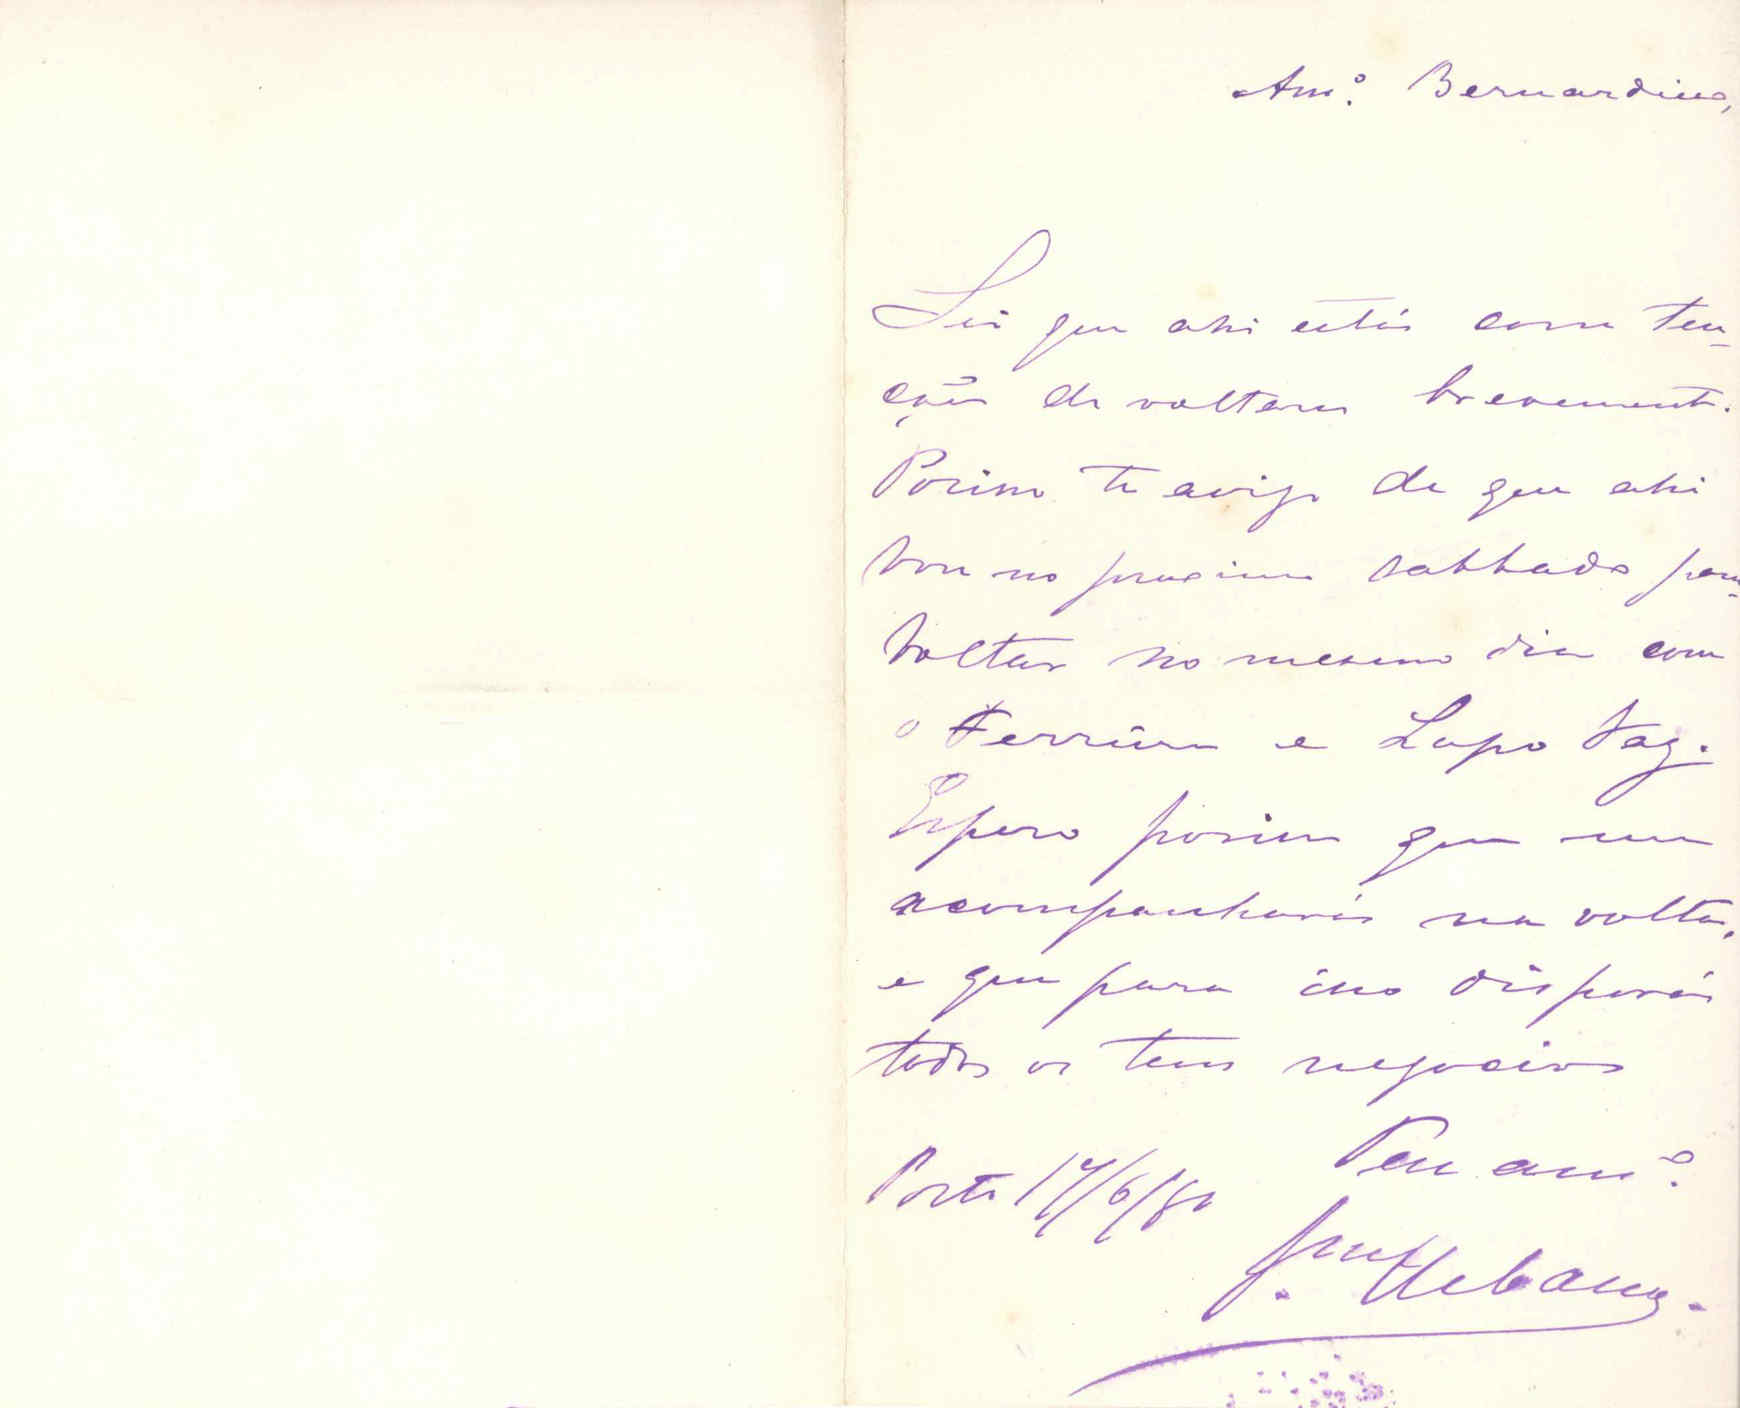 Am.º Bernardino,
Sei que ahi estás com ten-
ções de voltares brevemente.
Porém te aviso de que ahi
vou no proximo sabbado para
voltar no mesmo dia com
o Ferreira e Lopo Vaz.
Espero porém que me
acompanharás na volta,
e que para isso disporás
todos os teus negocios
Teu am.º
Porto 17/6/80